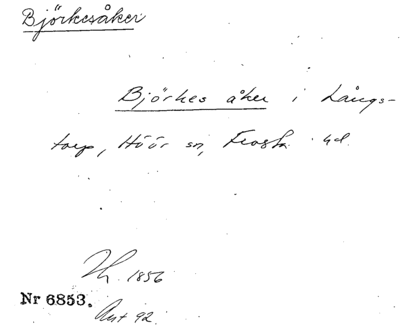 Björkesåker
Björkes åker i Långs-
torp, Höör sn, Frosta hd.
1856
Nr 6853.
Ant 92